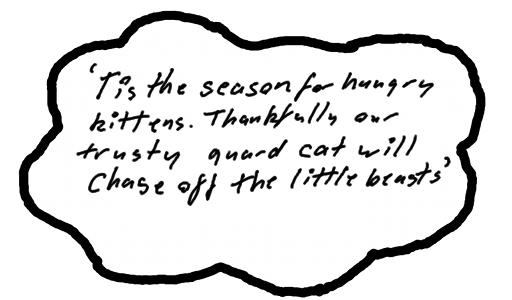 'Tis the season for hungry
kittens. Thankfully our
trusty guard cat will
Chase off the little beasts'